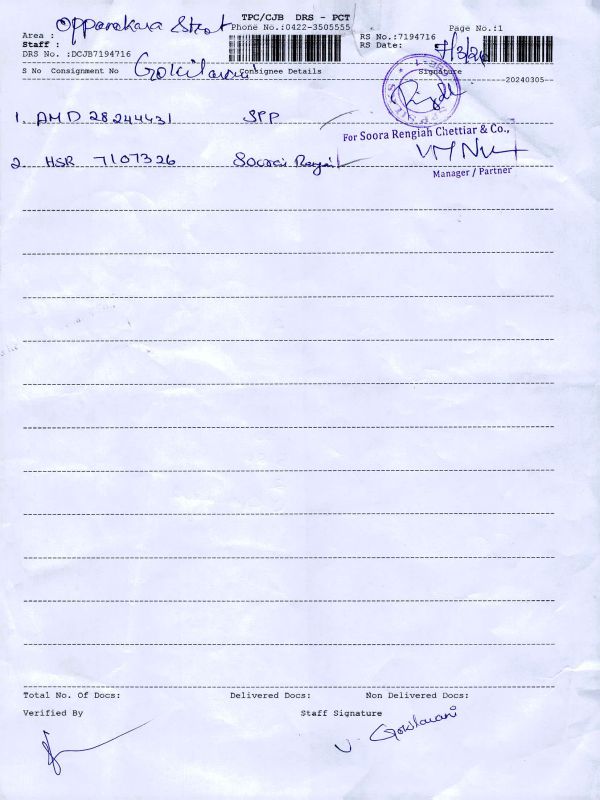 TPC/CJB DRS - PCT
Oppanakara Street
Phone No.:0422-3505555
Page No.:1
Area :
RS No.:7194716
Staff :
RS Date:
DRS No. :DCJB7194716
S No Consignment No
Consignee Details
Signature
20240305
1. AMD 28244431 SPP
For Soora Rengiah Chettiar & Co.,
2. HSR 7107326
Manager / Partner
Total No. Of Docs:
Delivered Docs:
Non Delivered Docs:
Verified By
Staff Signature